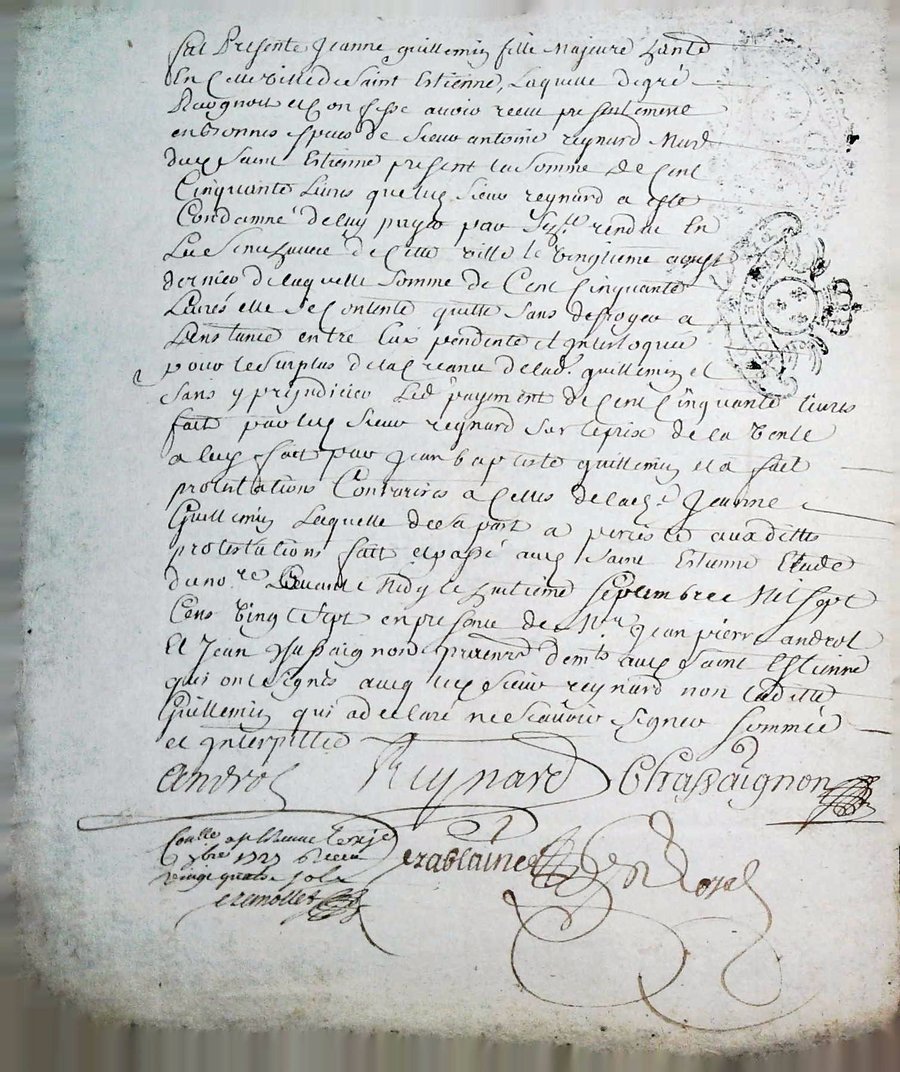 fut Presente Jeanne guillemin fille Majeure hante
En Cette ville de Saint Estienne, Laquelle de gré
Recognoit et Confesse avoir receu presentement
en bonnes espèces de Sieur antoine reynard Mard
dud Saint Estienne present la Somme de Cent
Cinquante Livres que led Sieur reynard a esté
Condamné de luy payer par rendue En
La Senechaucée de Cette ville le vingtième aoust
dernier de laquelle Somme de Cent Cinquante
Livres elle Se Contente quitte Sans deroger a
L'instance entre Eux pendente et Interloquée
pour le Surplus de la Creance de lad. guillemin et
Sans y prejudicier Led payement de Cent Cinquante livres
fait par led Sieur reynard Sur le prix de la Vente
a luy fait par Jean baptiste guillemin et a fait
protestations Contraires a Celles de lad. Jeanne
Guillemin Laquelle de sa part a persisté auxdittes
protestations fait et passé aud Saint Estienne Etude
du no.re Avant Midy le huitième Septembre Mil Sept
Cens Vingt Sept en presence de Mre Jean pierre androl
Et Jean Chassaignon praticiens demts aud Saint Estienne
qui ont Signés avec led Sieur reynard non laditte
Guillemin qui a declaré ne Scavoir Signer Sommée
et Interpellée
androl Reynard Chassaignon
Conllé a St Etienne le
7bre 1727 Receu
vingt quatre Sols